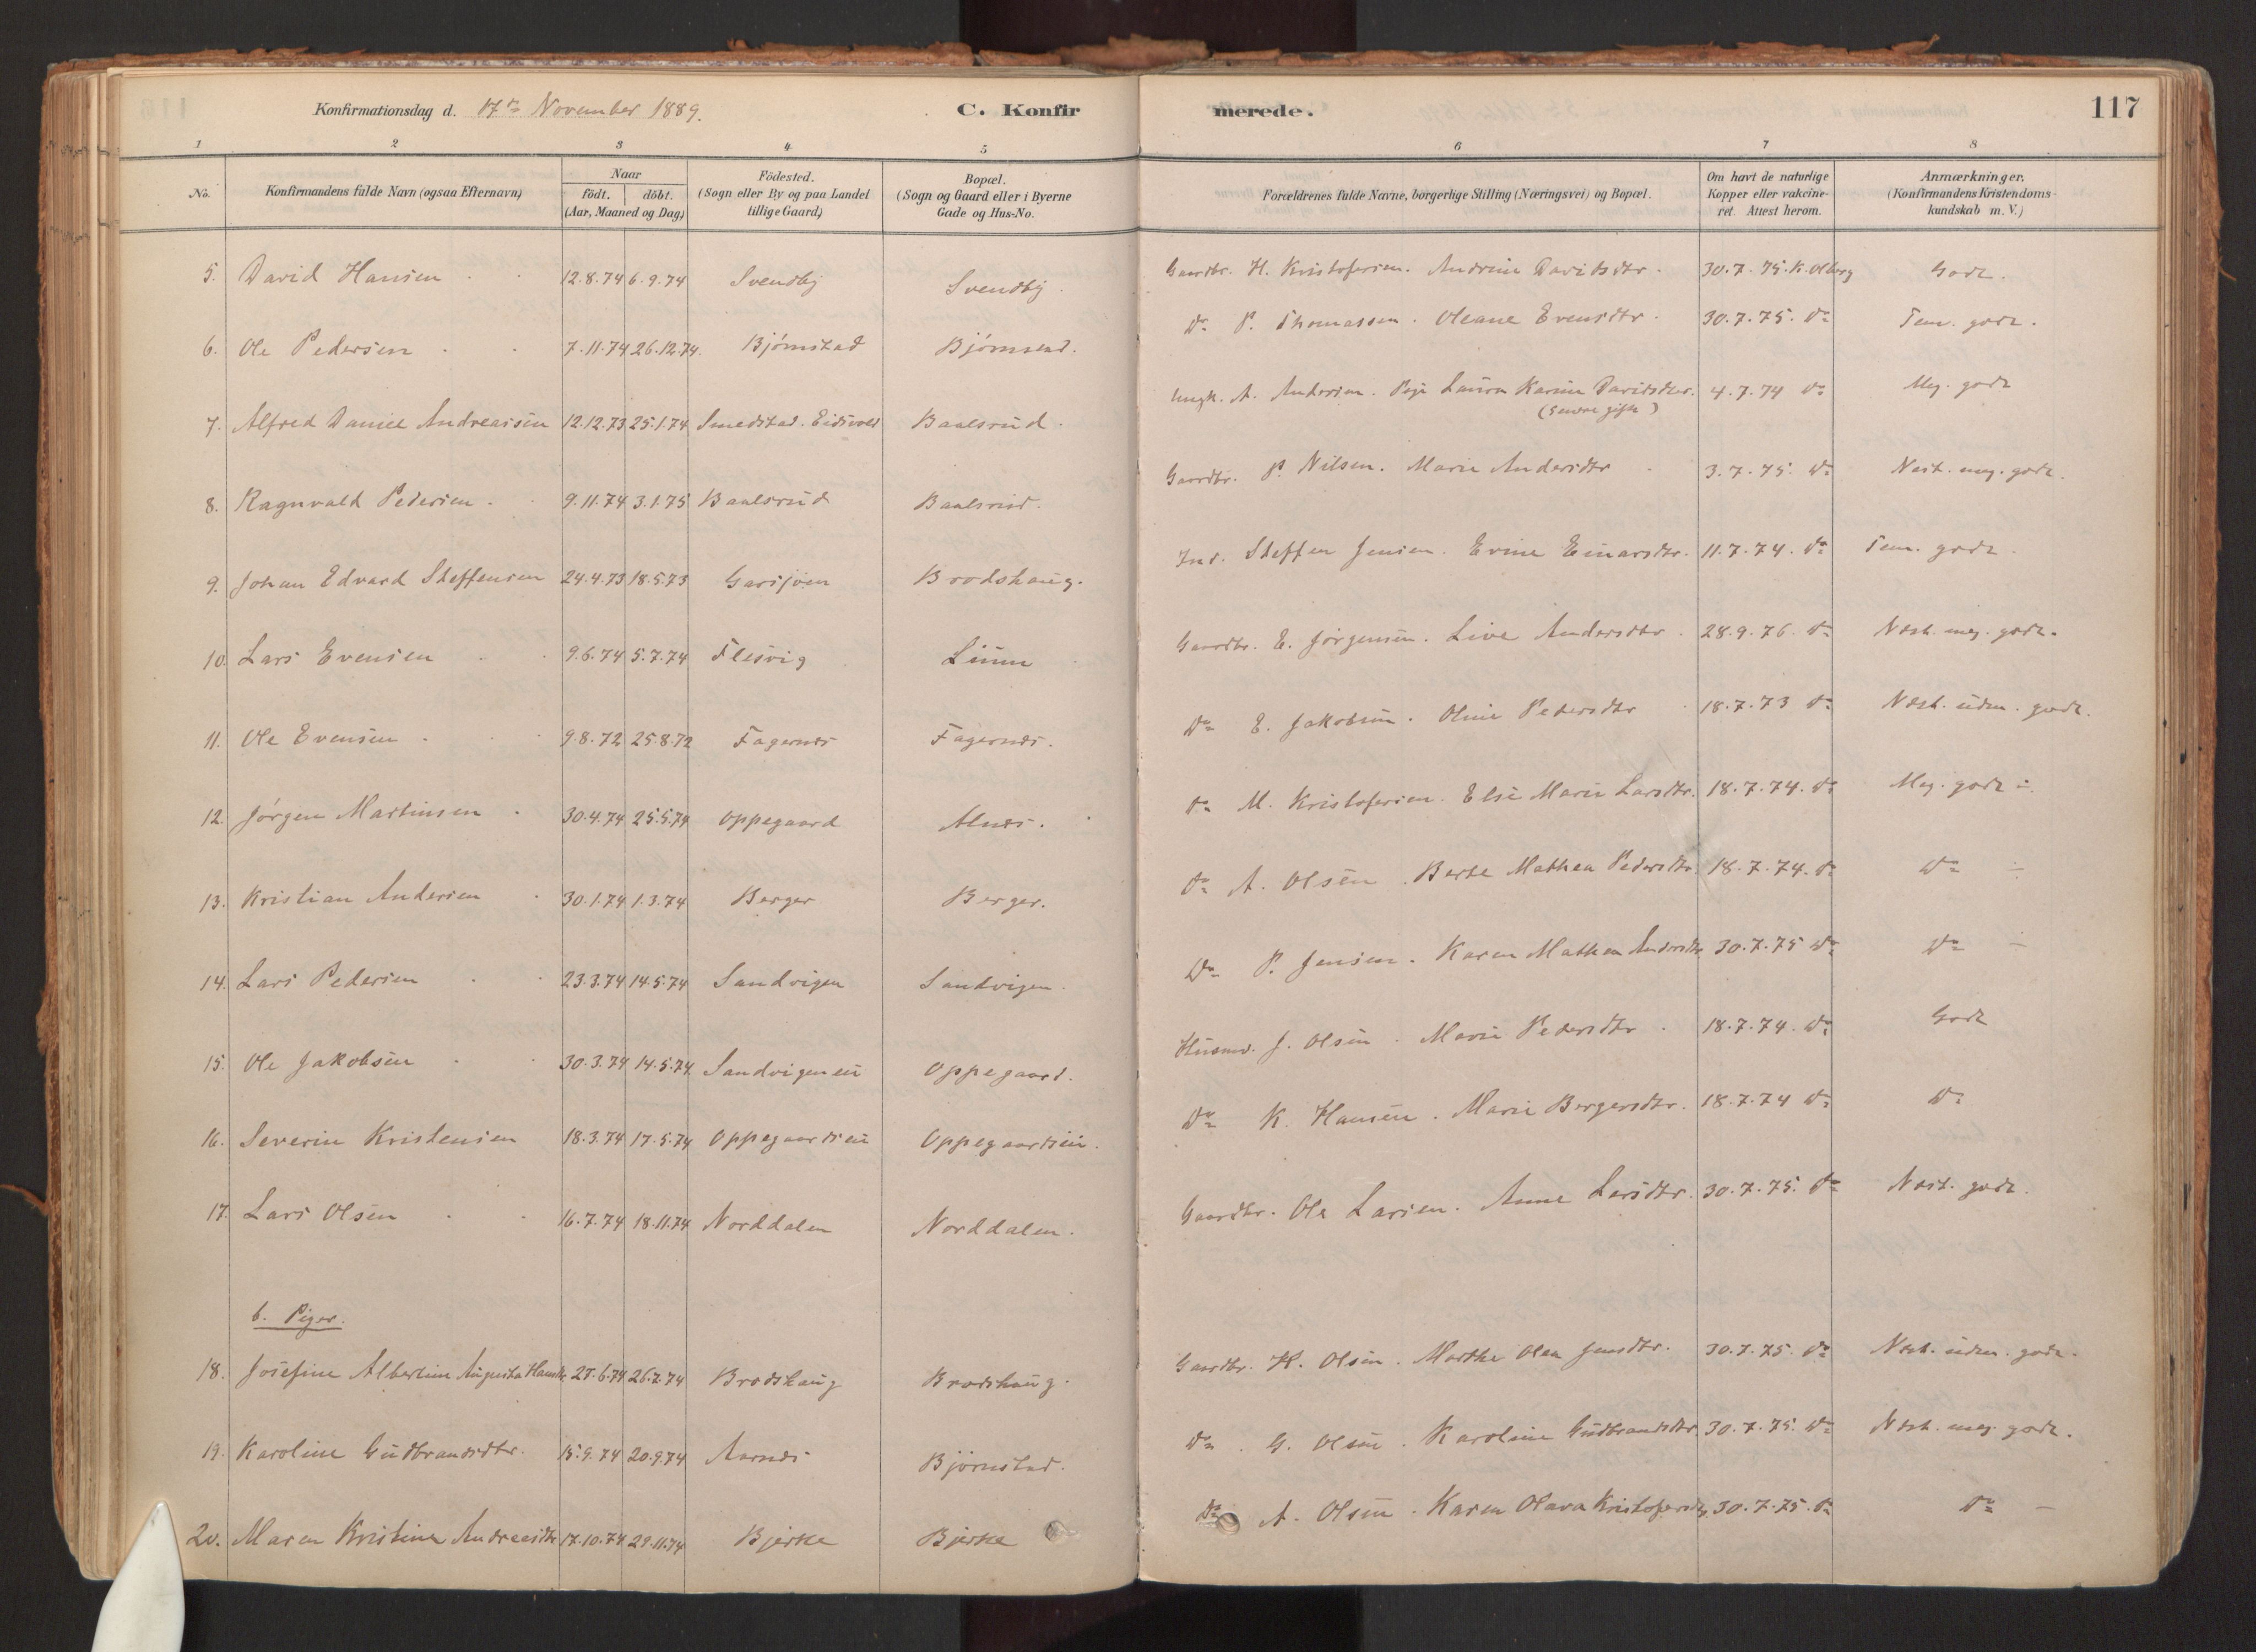 Konfirmationsdag d. 17de November 1889. C. Konfirmerede. 117
1 2 3 4 5 6 7 8
No. Konfirmandens fulde Navn (ogsaa Efternavn) Naar födt. döbt. (Aar, Maaned og Dag) Födested. (Sogn eller By og paa Landet tillige Gaard) Bopæl. (Sogn og Gaard eller i Byerne Gade og Hus-No. Forældrenes fulde Navne, borgerlige Stilling (Næringsvei) og Bopæl. Om havt de naturlige Kopper eller vakcineret. Attest herom. Anmærkninger. (Konfirmandens Kristendomskundskab m. V.)
5. David Hansen 12.8.74 6.9.74 Svendby Svendby. Gaardbr. H. Kristofersen. Andrine Davidsdtr. 30.7.75. K. Olberg Godt.
6. Ole Pedersen 7.11.74 26.12.74. Björnstad Björnstad. Do P. Thomassen. Oleane Evensdtr. 30.7.75. Do Tem. godt.
7. Alfred Daniel Andreassen 12.12.73 25.1.74 Smedstad. Eidsvold Baalsrud. Ungk. A. Andersen. Pige Laura Karine Davidsdtr. (senere gift) 4.7.74 Do Meg. godt
8. Ragnvald Pedersen. 9.11.74 3.1.75 Baalsrud Baalsrud. Gaardbr. P. Nilsen. Marie Andersdtr 3.7.75. Do Næst. meg. godt.
9. Johan Edvard Steffensen 24.4.73 18.5.73 Garsjöen Brodshaug. Ind. Steffen Jensen. Evine Einarsdtr. 11.7.74. Do Tem. godt.
10. Lars Evensen 9.6.74 5.7.74 Flesvig Linnu Gaardbr. E. Jörgensen. Live Andersdtr. 28.9.76. Do Næst. meg. godt.
11. Ole Evensen. 9.8.72 25.8.72 Fagernæs Fagernæs. Do E. Jakobsen. Oline Pedersdtr 18.7.73 Do Næst. udm. godt.
12. Jörgen Martinsen 30.4.74 25.5.74 Oppegaard Alnæs. Do M. Kristofersen. Else Marie Larsdtr. 18.7.74. Do Meg. godt ÷
13. Kristian Andersen 30.1.74 1.3.74 Berger Berger. Do A. Olsen. Berte Mathea Pedersdtr. 18.7.74. Do Do ÷
14. Lars Pedersen 23.3.74 14.5.74 Sandvigen Sandvigen. Do P. Jensen. Karen Mathea Andersdtr. 30.7.75 Do Do ÷
15. Ole Jakobsen 30.3.74 14.5.74 Sandvigen ei Oppegaard. Husmd. J. Olsen. Marie Pedersdtr. 18.7.74. Do Godt
16. Severin Kristensen 18.3.74 17.5.74 Oppegaardsei Oppegaardsei. Do K. Hansen. Marie Bergersdtr. 18.7.74 Do Do
17. Lars Olsen 16.7.74 18.11.74 Norddalen Norddalen. Gaardbr. Ole Larsen. Anne Larsdtr. 30.7.75. Do Næst. godt.
b. Piger.
18. Josefine Albertine Augusta Hansdtr. 25.6.74 26.7.74 Brodshaug Brodshaug. Gaardbr. H. Olsen. Marthe Olea Jensdtr. 30.7.75. Do Næst. udm. godt.
19. Karoline Gudbrandsdtr. 15.9.74 20.9.74 Aarnæs Björnstad. Do G. Olsen. Karoline Gudbrandsdtr. 30.7.75. Do Næst. meg. godt.
20. Maren Kristine Andreasdtr 17.10.74 29.11.74 Bjerke Bjerke Do A. Olsen. Karen Olava Kristofersdtr. 30.7.75. Do Do –